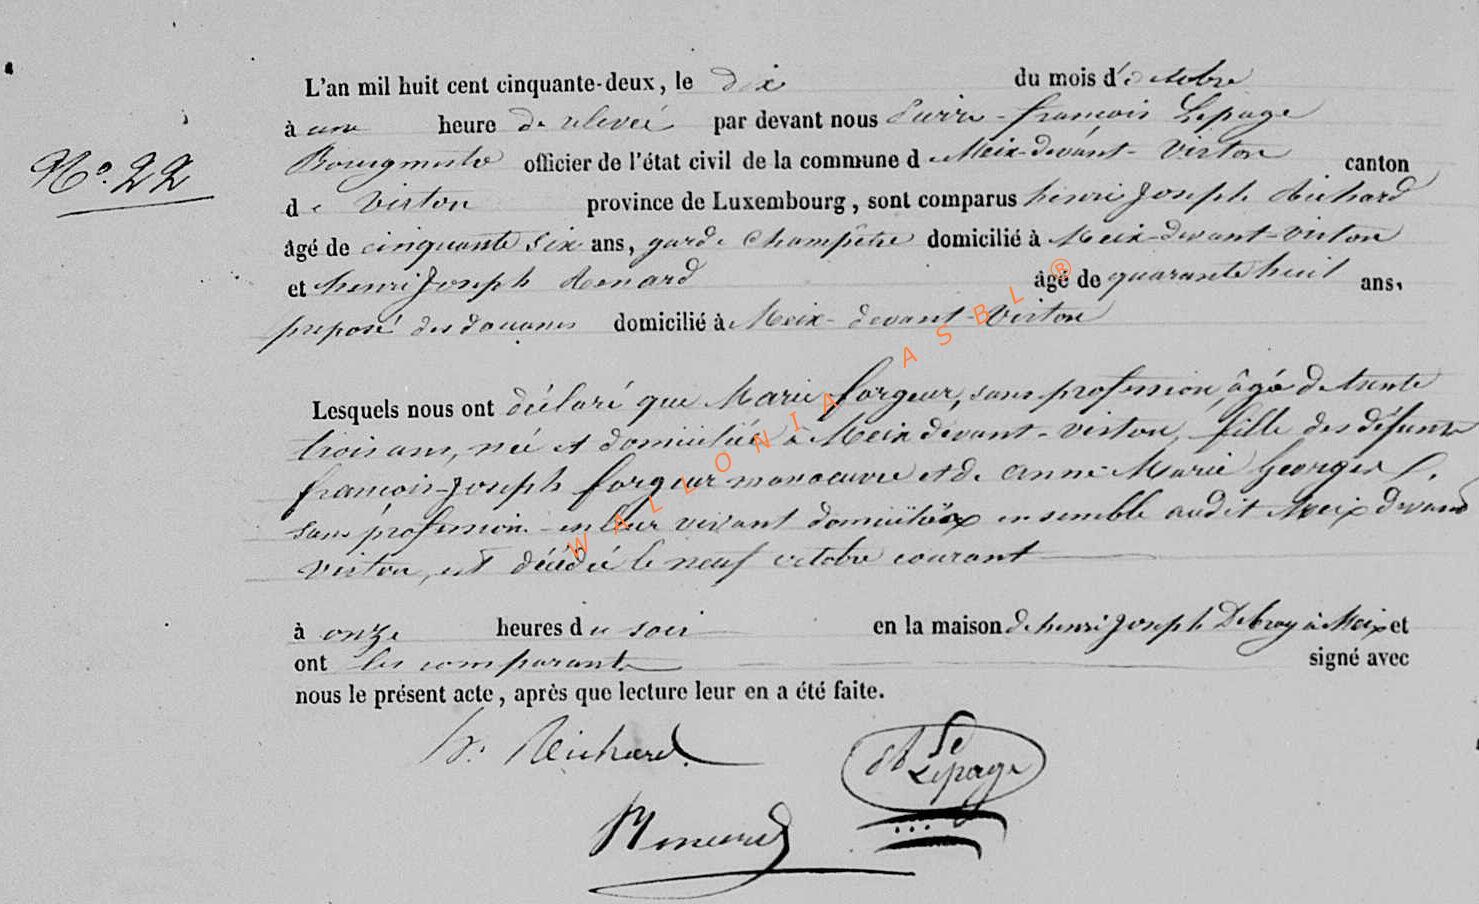 L'an mil huit cent cinquante-deux, le dix du mois d'octobre
à une heure de relevée par devant nous Pierre-françois Lepage
Bourgmestre officier de l'état civil de la commune de Meix-devant-Virton canton
N.º 22
de Virton province de Luxembourg, sont comparus henri Joseph Richard
âgé de cinquante six ans, garde champêtre domicilié à Meix-devant-virton
et henri Joseph Renard âgé de quarante huit ans,
preposé des douanes domicilié à Meix-devant-Virton
Lesquels nous ont déclaré que Marie forgeur, sans profession, âgée de trente
trois ans, née et domiciliée à Meix devant-virton, fille des défunts
françois-Joseph forgeur manoeuvre et de anne-Marie Georges
sans profession en leur vivant domiciliés ensemble audit Meix devant
virton, est décédée le neuf octobre courant
à onze heures du soir en la maison de henri Joseph Debray à Meix et
ont les comparants signé avec
nous le présent acte, après que lecture leur en a été faite.
h. Richard
Lepage
Renard
WALLONIA ASBL ®